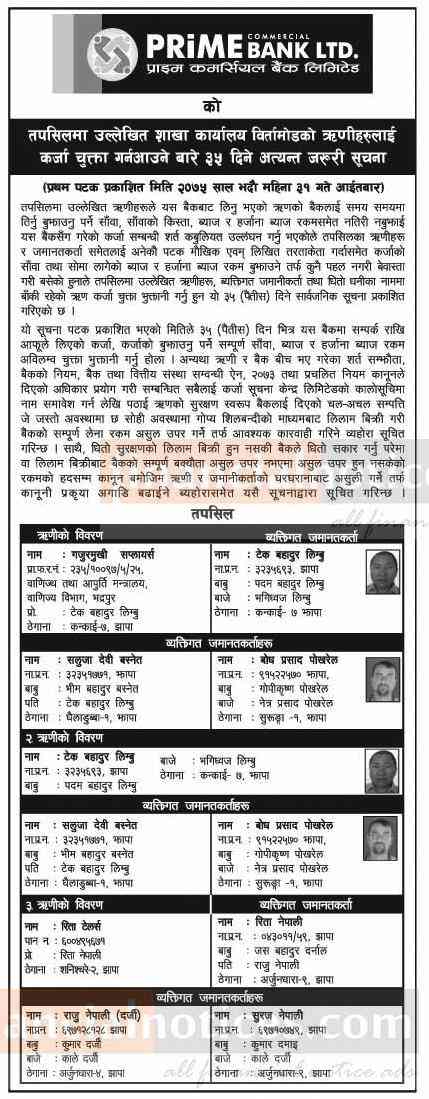 COMMERCIAL
PRIME BANK LTD.
प्राइम कमर्सियल बैंक लिमिटेड
को
तपसिलमा उल्लेखित शाखा कार्यालय विर्तामोडको ऋणीहरुलाई
कर्जा चुक्ता गर्नआउने बारे ३५ दिने अत्यन्त जरूरी सूचना
(प्रथम पटक प्रकाशित मिति २०७५ साल भदौ महिना ३१ गते आईतबार)
तपसिलमा उल्लेखित ऋणीहरूले यस बैंकबाट लिनु भएको ऋणको बैंकलाई समय समयमा
तिर्नु बुझाउनु पर्ने साँवा, साँवाको किस्ता, ब्याज र हर्जाना ब्याज रकमसमेत नतिरी नबुझाई
यस बैंकसँग गरेको कर्जा सम्बन्धी शर्त कबुलियत उल्लंघन गर्नु भएकोले तपसिलका ऋणीहरू
र जमानतकर्ता समेतलाई अनेकौ पटक मौखिक एवम् लिखित तरताकेता गर्दासमेत कर्जाको
साँवा तथा सोमा लागेको ब्याज र हर्जाना ब्याज रकम बुझाउने तर्फ कुनै पहल नगरी बेवास्ता
गरी बसेको हुनाले तपसिलमा उल्लेखित ऋणीहरू, ब्यक्तिगत जमानीकर्ता तथा धितो धनीका नाममा
बाँकी रहेको ऋण कर्जा चुक्ता भुक्तानी गर्नु हुन यो ३५ (पैंतीस) दिने सार्वजनिक सूचना प्रकाशित
गरिएको छ ।
यो सूचना पटक प्रकाशित भएको मितिले ३५ (पैतीस) दिन भित्र यस बैंकमा सम्पर्क राखि
आफूले लिएको कर्जा, कर्जाको बुझाउनु पर्ने सम्पूर्ण साँवा, ब्याज र हर्जाना ब्याज रकम
अविलम्व चुक्ता भुक्तानी गर्नु होला । अन्यथा ऋणी र बैंक बीच भए गरेका शर्त सम्झौता,
बैंकको नियम, बैंक तथा वित्तीय संस्था सम्वन्धी ऐन, २०७३ तथा प्रचलित नियम कानूनले
दिएको अधिकार प्रयोग गरी सम्बन्धित सबैलाई कर्जा सूचना केन्द्र लिमिटेडको कालोसूचिमा
नाम समावेश गर्न लेखि पठाई ऋणको सुरक्षण स्वरूप बैंकलाई दिएको चल-अचल सम्पति
जे जस्तो अवस्थामा छ सोही अवस्थामा गोप्य शिलबन्दीको माध्यमबाट लिलाम बिक्री गरी
बैंकको सम्पूर्ण लेना रकम असुल उपर गर्ने तर्फ आवश्यक कारवाही गरिने व्यहोरा सूचित
गरिन्छ । साथै, धितो सुरक्षणको लिलाम बिक्री हुन नसकी बैंकले धितो सकार गर्नु परेमा
वा लिलाम बिक्रीबाट बैंकको सम्पूर्ण बक्यौता असुल उपर नभएमा असुल उपर हुन नसकेको
रकमको हदसम्म कानून बमोजिम ऋणी र जमानीकर्ताको घरघरानाबाट असुली गर्ने तर्फ
कानूनी प्रकृया अगाडि बढाईने ब्यहोरासमेत यसै सूचनाद्वारा सूचित गरिन्छ ।
तपसिल
ऋणीको विवरण
नाम : गजुरमुखी सप्लायर्स
प्रा.फ.र.नं : २३५/१००९७/५/२५,
वाणिज्य तथा आपुर्ति मन्त्रालय,
वाणिज्य विभाग, भद्रपुर
प्रो. : टेक बहादुर लिम्बु
ठेगाना : कन्काई-७, झापा
व्यक्तिगत जमानतकर्ता
नाम : टेक बहादुर लिम्बु
ना.प्र.न. : ३२३५६९३, झापा
बाबु : पदम बहादुर लिम्बु
बाजे : भगिध्वज लिम्बु
ठेगाना : कन्काई- ७ झापा
व्यक्तिगत जमानतकर्ताहरू
नाम : सलुजा देवी बस्नेत
ना.प्रन. : ३२३५१७७१, झापा
बाबु : भीम बहादुर बस्नेत
पति : टेक बहादुर लिम्बु
ठेगाना : घैलाडुब्बा-१, झापा
नाम : बोध प्रसाद पोखरेल
ना.प्र.न. : ९१५२२५७० झापा
बाबु : गोपीकृष्ण पोखरेल
बाजे : नेत्र प्रसाद पोखरेल
ठेगाना : सुरूङ्गा -१, झापा
२ ऋणीको विवरण
नाम : टेक बहादुर लिम्बु
ना.प्रन. : ३२३५६९३, झापा
बाबु : पदम बहादुर लिम्बु
बाजे : भगिध्वज लिम्बु
ठेगाना : कन्काई- ७, झापा
व्यक्तिगत जमानतकर्ताहरू
नाम : सलुजा देवी बस्नेत
ना.प्र.न. : ३२३५१७७१, झापा
बाबु : भीम बहादुर बस्नेत
पति : टेक बहादुर लिम्बु
ठेगाना : घैलाडुब्बा-१, झापा
नाम : बोध प्रसाद पोखरेल
ना.प्र.न. : ९१५२२५७०,
बाबु : गोपीकृष्ण पोखरेल
बाजे : नेत्र प्रसाद पोखरेल
ठेगाना : सुरूङ्गा -१, झापा
३ ऋणीको विवरण
नाम : रिता टेलर्स
पान न. : ६००४९५६७१
प्रो : रिता नेपाली
ठेगाना : शनिश्चरे-२, झापा
व्यक्तिगत जमानतकर्ता
नाम : रिता नेपाली
ना.प्र.न. : ०४३०११/५९, झापा
बाबु : जस बहादुर दर्नाल
पति : राजु नेपाली
ठेगाना : अर्जुनधारा-९, झापा
व्यक्तिगत जमानतकर्ताहरू
नाम : राजु नेपाली (दर्जी)
ना.प्रन. : ६९७१२८१२८ झापा
बाबु : कुमार दर्जी
बाजे : काले दर्जी
ठेगाना : अर्जुनधारा-४, झापा
नाम : सुरज नेपाली
ना.प्र.न. : ६९७१०७४९, झापा
बाबु : कुमार दमाइ
बाजे : काले दर्जी
ठेगाना : अर्जुनधारा-९, झापा